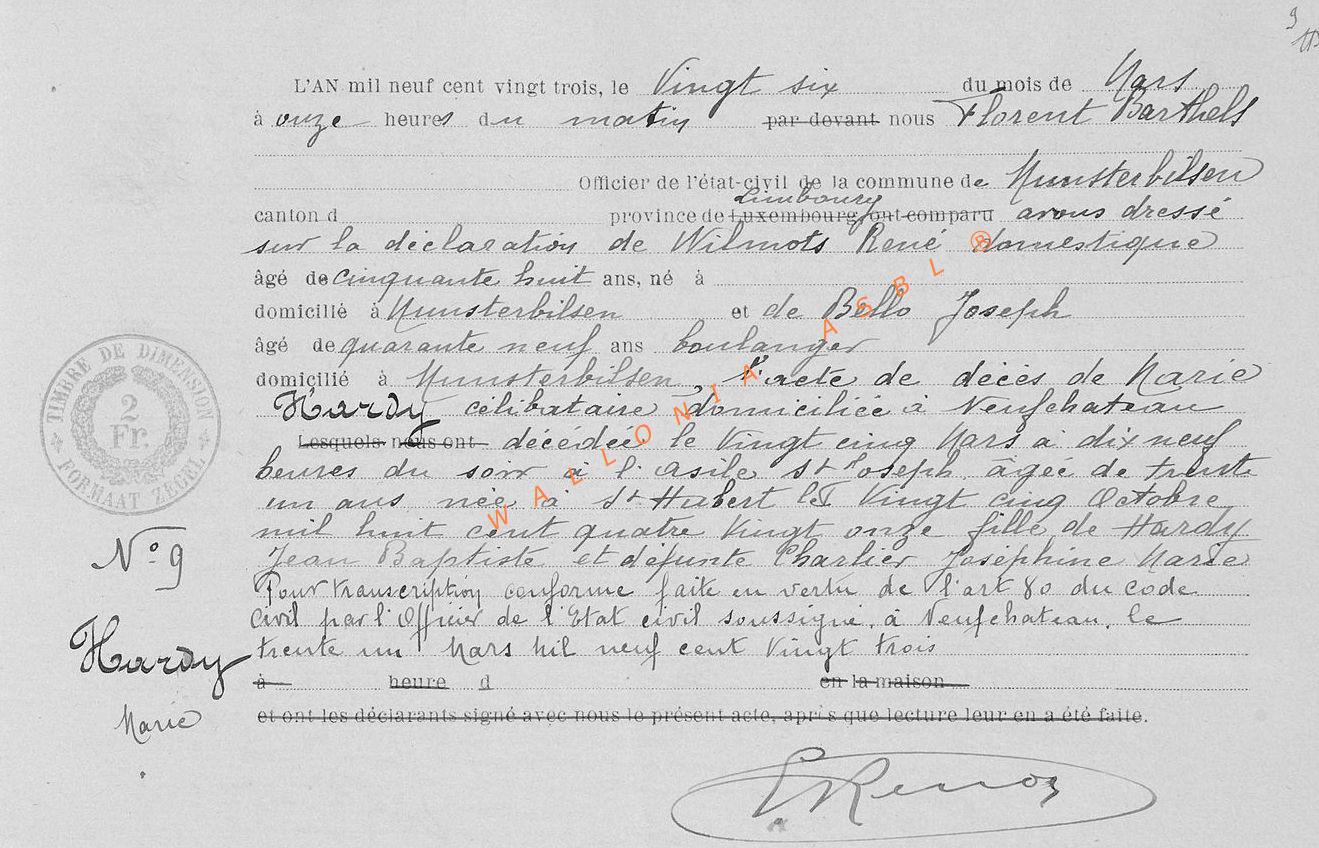 9
L'AN mil neuf cent vingt trois, le Vingt six du mois de Mars
à onze heures du matin par devant nous Florent Barthels
Officier de l'état-civil de la commune de Munsterbilsen
Limbourg
canton d province de Luxembourg, ont comparu avons dressé
sur la déclaration de Wilmots René domestique
âgé de cinquante huit ans, né à
domicilié à Munsterbilsen et de Bello Joseph
âgé de quarante neuf ans boulanger
domicilié à Munsterbilsen, l'acte de décès de Marie
Hardy célibataire domiciliée à Neufchateau
Lesquels nous ont décédée le Vingt cinq Mars à dix neuf
heures du soir à l'asile St Joseph, âgée de trente
un ans, née à St Hubert le Vingt cinq Octobre
mil huit cent quatre Vingt onze fille de Hardy
Jean Baptiste et défunte Charlier Joséphine Marie
Pour transcription conforme faite en vertu de l'art 80 du code
Civil par l'Officier de l'Etat civil soussigné, à Neufchateau, le
trente un Mars Mil neuf cent Vingt trois
à heure d en la maison
et ont les déclarants signé avec nous le présent acte, après que lecture leur en a été faite.
TIMBRE DE DIMENSION
2
Fr.
FORMAAT ZEGEL
N° 9
Hardy
Marie
WALLONIA ASBL ®